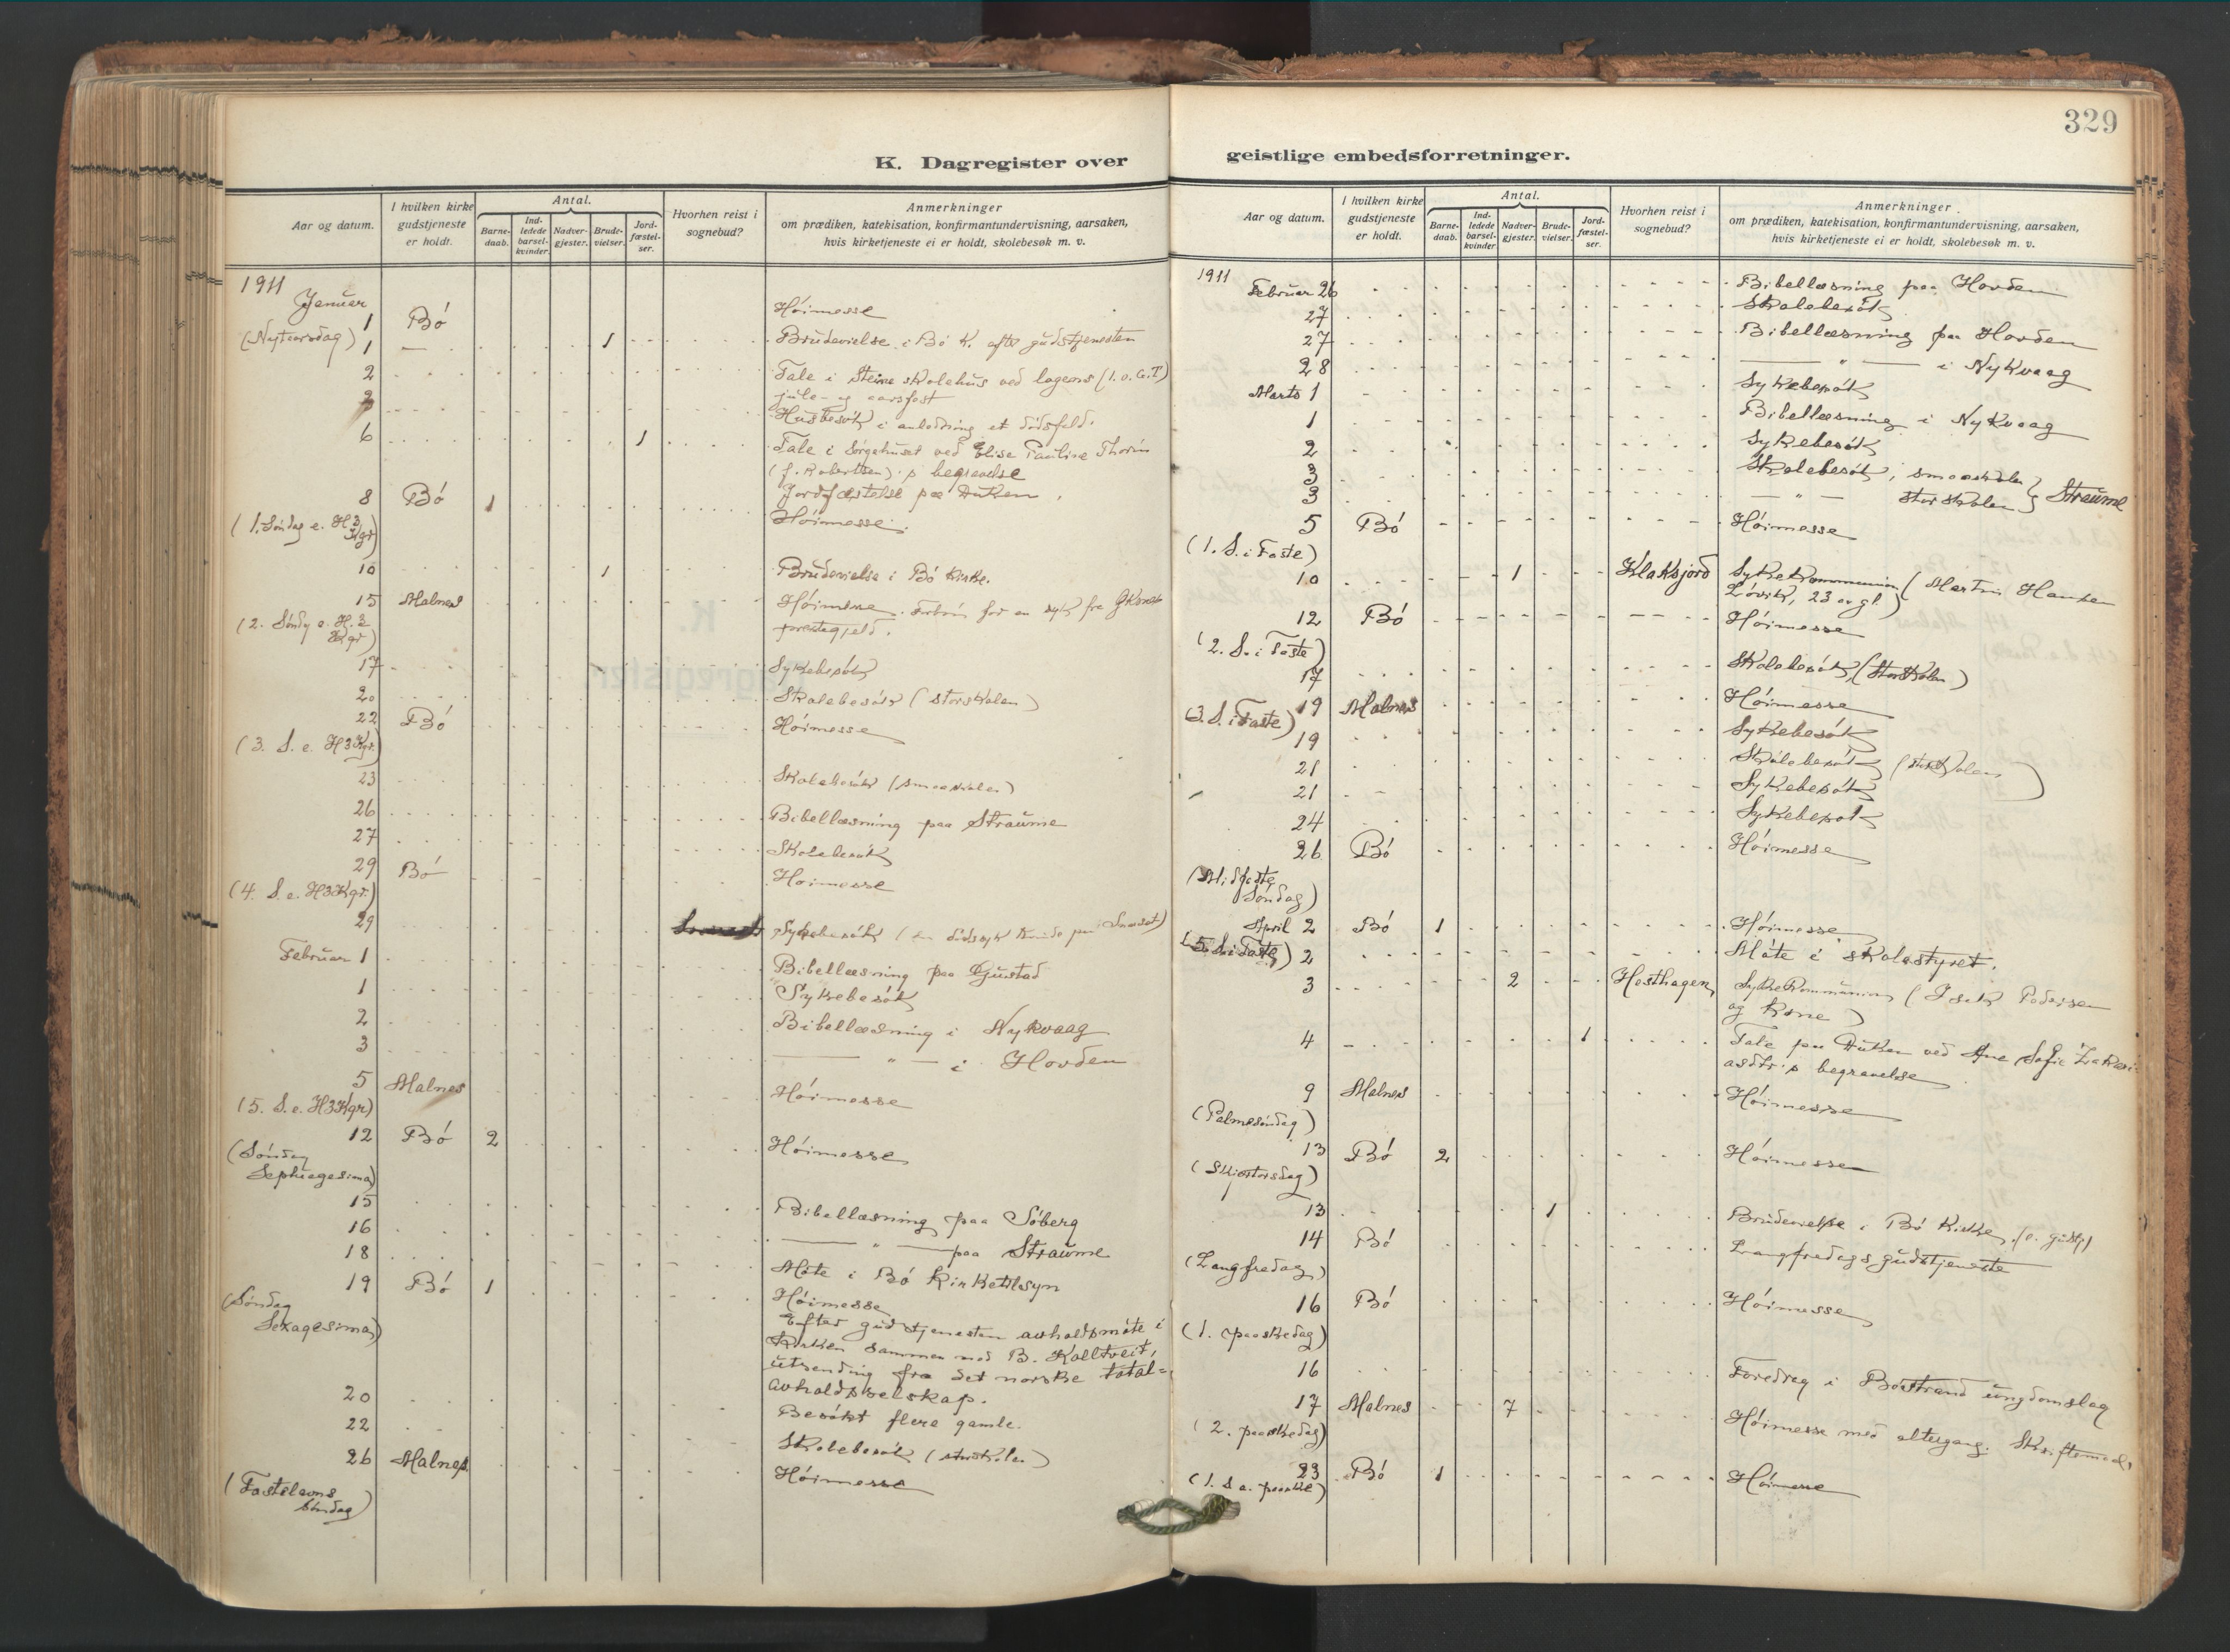 329
K. Dagregister over
Aar og datum.
I hvilken kirke gudstjeneste er holdt.
Antal.
Barne-daab.
Ind-ledede barsel-kvinder.
Nadver-gjester.
Brude-vielser.
Jord-fæstel-ser.
Hvorhen reist i sognebud?
Anmerkninger
om prædiken, katekisation, konfirmantundervisning, aarsaken,
hvis kirketjeneste ei er holdt, skolebesøk m. v.
1911
Januar
1 Bó Hóimesse
(Nytaarsdag) 1 — 1 Brudevielse i Bó K. efter gudstjenesten
2 Tale i Steine skolehus ved logens (I.O.G.T)
jule- og aarsfest
3 Husbesók i anledning et dódsfald.
6 1 Tale i sórgehuset ved Elise Pauline
(f. Robertsen)s begravelse
Jordfæstelse paa
8 Bó 1 Hóimesse.
(1. Sóndag e. H3Kgr)
10 1 Brudevielse i Bó kirke.
15 Malnes Hóimesse. Forbón for en syk fra
prestegjeld.
(2. Sóndag e. H.3Kgr)
17 Sykebesók
20 Skolebesók (storskolen)
22 Bó Hóimesse
(3. S. e. H3Kgr.)
23 Skolebesók (smaaskolen)
26 Bibellæsning paa Straume
27 Skolebesók
29 Bó Hóimesse
(4. S. e. H3Kgr.)
29 Sykebesók (en dódssyk kvinde paa
Februar 1 Bibellæsning paa Gustad
1 Sykebesók
2 Bibellæsning i Nykvaag
3 — " — i Hovden
5 Malnes Hóimesse
(5. S. e. H3Kgr)
12 Bó 2 Hóimesse
(Sóndag
Septuagesima)
15 Bibellæsning paa Sóberg
16 — " — paa Straume
18 Móte i Bó kirketilsyn
19 Bó 1 Hóimesse
(Sóndag
Sexagesima)
Efter gudstjenesten avholdsmóte i
kirken sammen med B. Kalltveit,
utsending fra det norske total=
avholdsselskap.
20 Besókt flere gamle.
22 Skolebesók (storskolen)
26 Malnes Hóimesse
(Fastelavns
sóndag)
geistlige embedsforretninger.
Aar og datum.
I hvilken kirke gudstjeneste er holdt.
Antal.
Barne-daab.
Ind-ledede barsel-kvinder
Nadver-gjester.
Brude-vielser.
Jord-fæstel-ser.
Hvorhen reist i sognebud?
Anmerkninger
om prædiken, katekisation, konfirmantundervisning, aarsaken,
hvis kirketjeneste ei er holdt, skolebesøk m. v.
1911
Februar 26 Bibellæsning paa Hovden
27 Skolebesók
27 Bibellæsning paa Hovden
28 — " — i Nykvaag
Marts 1 Sykebesók
1 Bibellæsning i Nykvaag
2 Sykebesók
3 Skolebesók, smaaskolen } Straume
3 — " — storskolen
5 Bó Hóimesse
(1. S. i Faste)
10 1 Klaksjord Sykekommunion (Martin Hansen
Lóvik, 23 gl.)
12 Bó Hóimesse
(2. S. i Faste)
17 Skolebesók (Storskolen)
19 Malnes Hóimesse
(3. S. i Faste)
19 Sykebesók
21 Skolebesók (storskolen)
21 Sykebesók
24 Sykebesók
26 Bó Hóimesse
(Midfaste
Sóndag)
April 2 Bó 1 Hóimesse
(5. S. i Faste) 2 Móte i skolestyret.
3 2 Hesthagen Sykekommunion (Isak Pedersen
og kone)
4 1 Tale paa ved Ane Sofie
begravelse
9 Malnes Hóimesse
(Palmesóndag)
13 Bó 2 Hóimesse
(Skjærtorsdag)
13 1 Brudevielse i Bó Kirke. (e. gudstj)
14 Bó Langfredagsgudstjeneste
(Langfredag)
16 Bó Hóimesse
(1. paaskedag)
16 Foredrag i Bóstrand ungdomslag
17 Malnes 7 Hóimesse med altergang. Skriftemaal.
(2. paaskedag)
23 Bó 1 Hóimesse
(1. S. e. paaske)